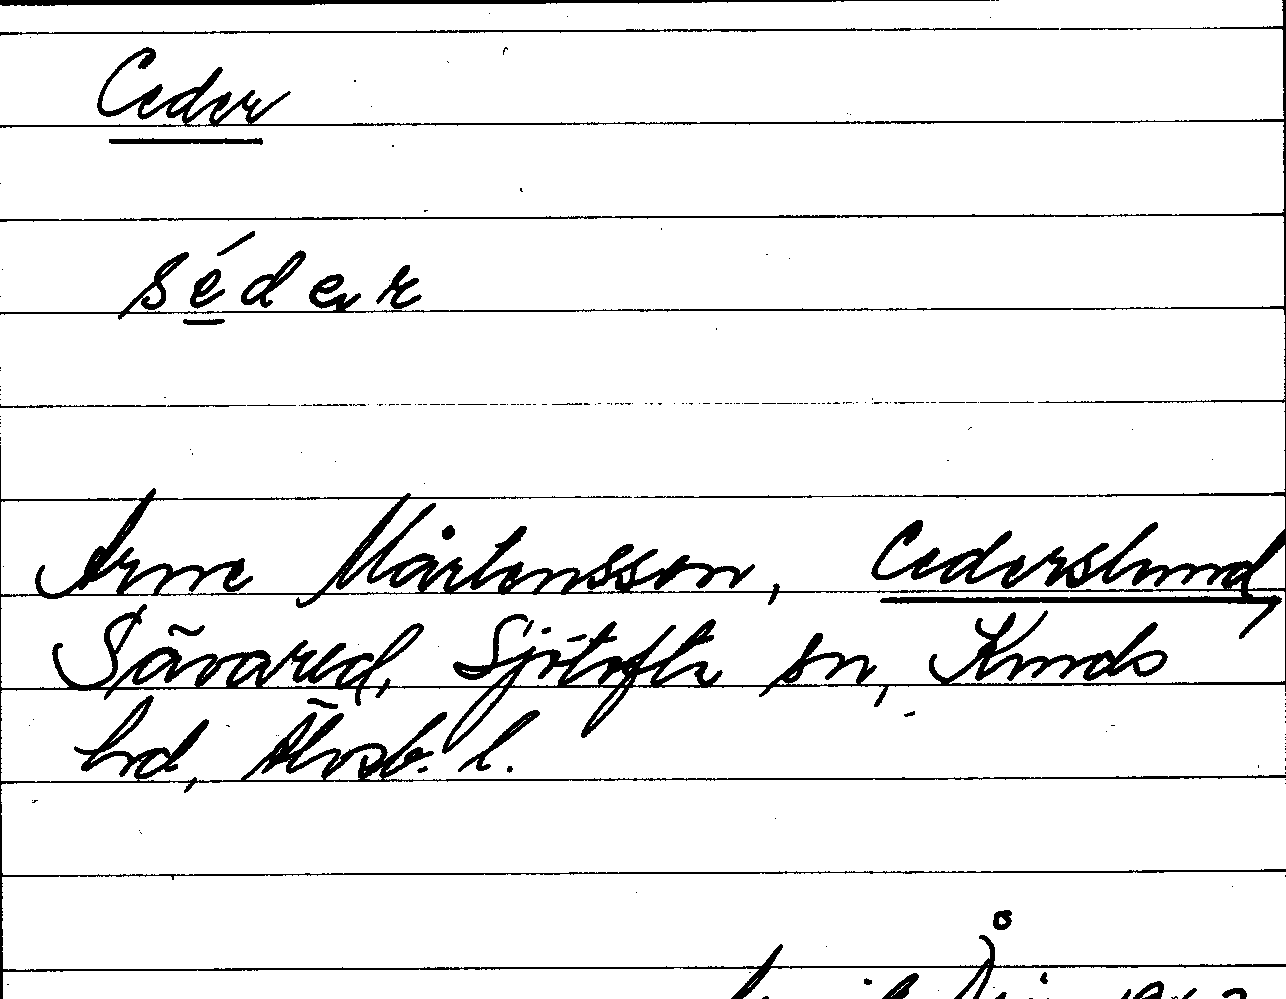 Ceder
séder
Arne Mårtensson, Cederslund,
Sävared, Sjötofta sn, Kinds
hd, Älvsb. l.